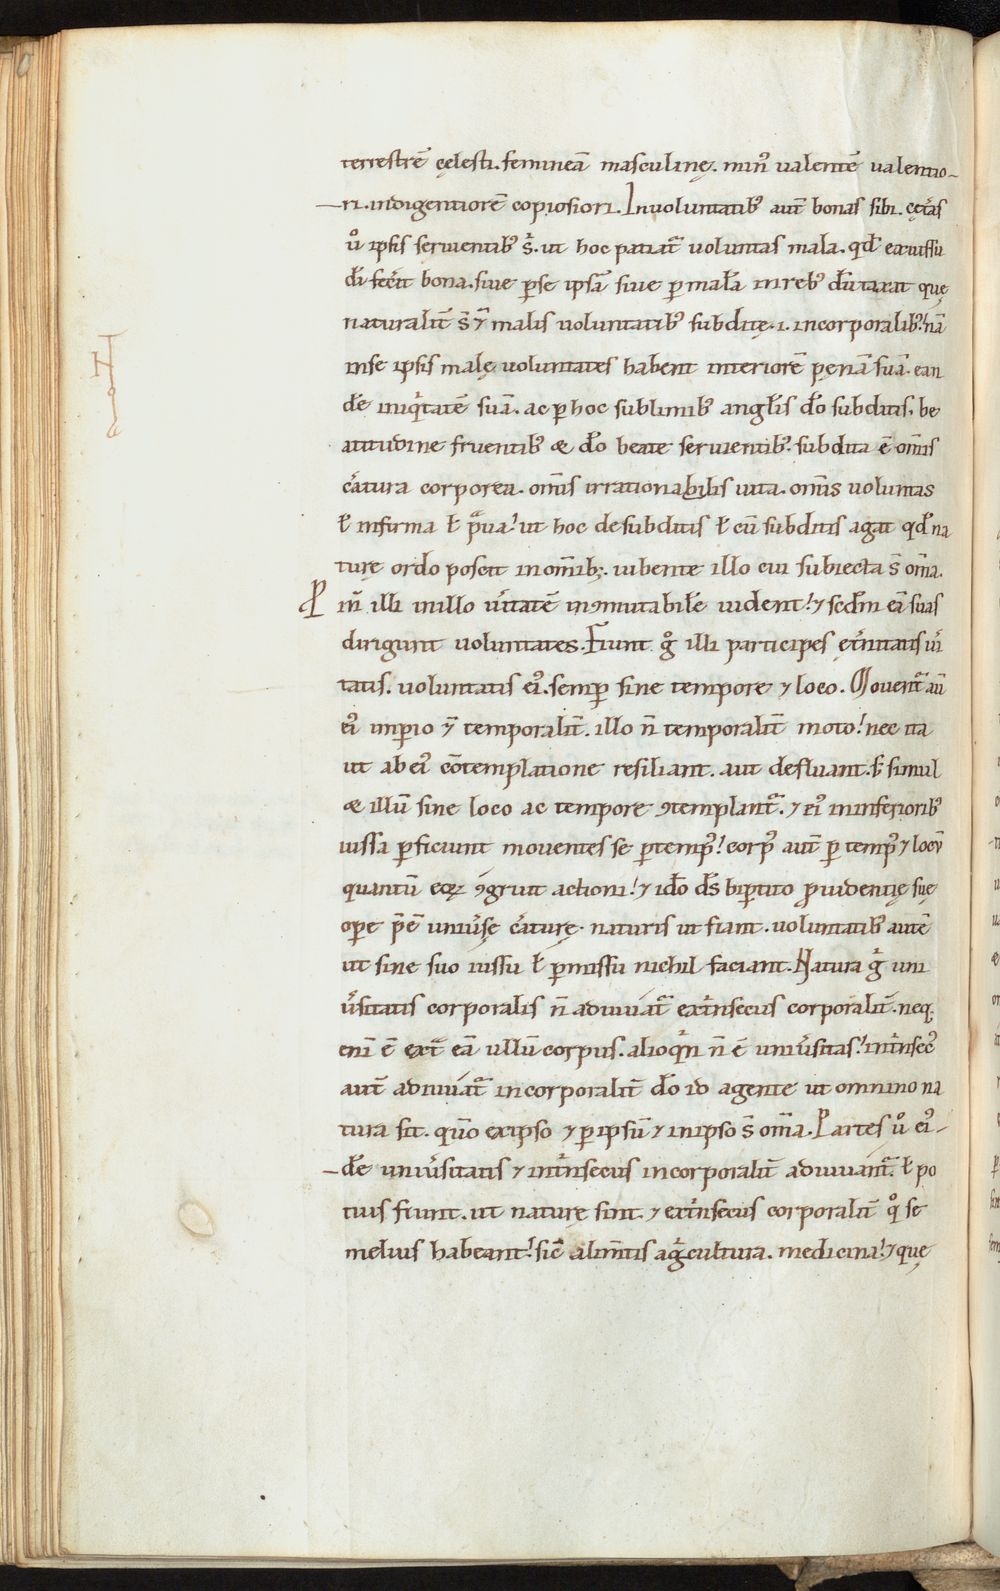 terrestrē cęlesti. femineā masculinę. min᷒ ualentē ualentio-
-ri. indigentiorē copiosiori. In uoluntatib᷒ aut̄ bonas sibi. cęt̾as
ů ipsis seruientib᷒ s̾. ut hoc patiat᷑ uoluntas mala. qđ ex iussu
dī fec̾it bona. siue ꝑ se ipsā siue ꝑ malā in reb᷒ dūtaxat quę
naturalit̄ s̄ ⁊ malis uoluntatib᷒ subditę. i. incorporalib᷒! nā
in se ipsis malę uoluntates habent interiorē pęnā suā. ean
dē iniqⁱtatē suā. ac ꝑ hoc sublimib᷒ angl̄is dō subditis, be
atitudine fruentib᷒ & dō beate seruientib᷒. subdita ē om̄is
c̾atura corporea. om̄is irrationabilis uita. om̄is uoluntas
ł infirma ł pᵃua! ut hoc de subditis ł cū subditis agat qđ na
turę ordo poscit in om̄ib;. iubente illo cui subiecta s̄ om̄a.
P in̄ illi in illo u̾itatē incōmutabilē uident! ⁊ sc̄dm eā suas
dirigunt uoluntates. Fiunt g̊ illi participes ęt̾nitatis ui̾
tatis. uoluntatis ei᷒. semꝑ sine tempore ⁊ loco. Mouent᷑ aū
ei᷒ imꝑio ⁊ temporalit̄. illo n̄ temporalit̄ moto! nec ita
ut ab ei᷒ cōtemplatione resiliant. aut defluant. s̄ simul
& illū sine loco ac tempore ꝯtemplant᷑. ⁊ ei᷒ in inferiorib᷒
iussa ꝑficiunt mouentes se ꝑ temp᷒! corp᷒ aut̄ ꝑ temp᷒ ⁊ locū
quantū eoꝝ ꝯgruit actioni! ⁊ idō ds̄ biꝑtito ꝓuidentię suę
oꝑe p̄ē uniu̾sę c̾aturę. naturis ut fiant. uoluntatib᷒ autē
ut sine suo iussu ł ꝑmissu nichil faciant. Natura gⁱ uni
u̾sitatis corporalis n̄ adiuuat᷑ ext̾insecus corporalit̄. neq;
eni ē extᵃ eā ullū corpus. alioqⁱn n̄ ē uniu̾sitas! int̾insec᷒
aut̄ adiuuat᷑ incorporalit̄ dō id agente ut omnino na
tura sit. qm̄o ex ipso ⁊ ꝑ ipsū ⁊ in ipso s̄ om̄a. Partes ů ei᷒-
-dē uniu̾sitatis ⁊ int̾insecus incorporalit̄ adiuuant᷑. ł po
tius fiunt. ut naturę sint. ⁊ ext̾insecus corporalit̄ qͦ se
melius habeant! sic̄ alim̄tis agⁱcultura. medicina! ⁊ quę